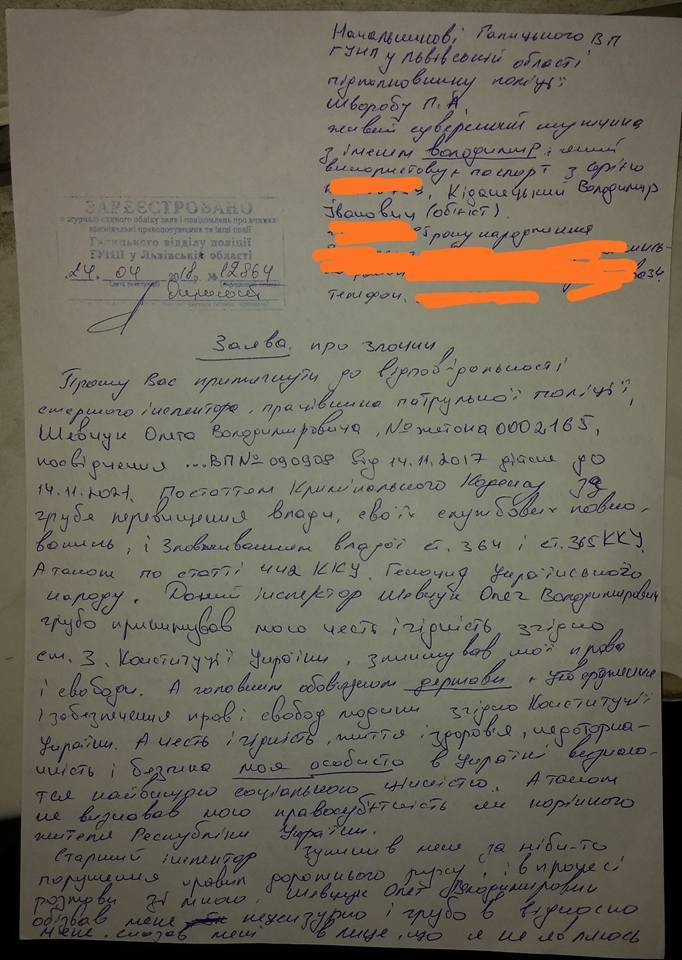 Начальникові Галицького ВП
ГУНП у Львівській області
підполковнику поліції
Шворобу П.А.
живий суверений мужчина
з іменем володимир і який
використовує паспорт з серією
Кіданецький Володимир
Іванович (обніст).
року народження
телефон.
ЗАРЕЄСТРОВАНО
в журналі єдиного обліку заяв і повідомлень про вчинені
кримінальні правопорушення та інші події
Галицького відділу поліції
ГУНП у Львівській області
24. 04 2018 р. № 12864
Заява про злочин
Прошу Вас притягнути до відповідальності
старшого інспектора, працівника патрульної поліції,
Шевчук Олега Володимировича, № жетона 0002165,
посвідчення ...ВП № 090908 від 14.11.2017 дійсне до
14.11.2021. По статтям Кримінального Кодексу за
грубе перевищення влади, своїх службових повно-
важень, і Зловживанням владою ст. 364 і ст. 365 ККУ.
А також по статті 442 ККУ. Геноцид Українського
народу. Даний інспектор Шевчук Олег Володимирович
грубо принижував мою честь і гідність згідно
ст. 3. Конституції України, знищував мої права
і свободи. А головним обовязком держави є утвердження
і забезпечення прав і свобод людини згідно Конституції
України. А честь і гідність, життя і здоров'я, недоторка-
ність і безпека моя особисто в Україні визнаю-
тся найвищою соціальною цінністю. А також
не визнавав мою правосубєктність як корінного
жителя Республіки Україна.
Старший інспектор зупинив мене за ніби-то
порушення правил дорожнього руху, і в процесі
розмови зі мною, Шевчук Олег Володимирович
обізвав мене нецензурно і грубо відносно
мене, сказав мені в лице, що я не являюсь